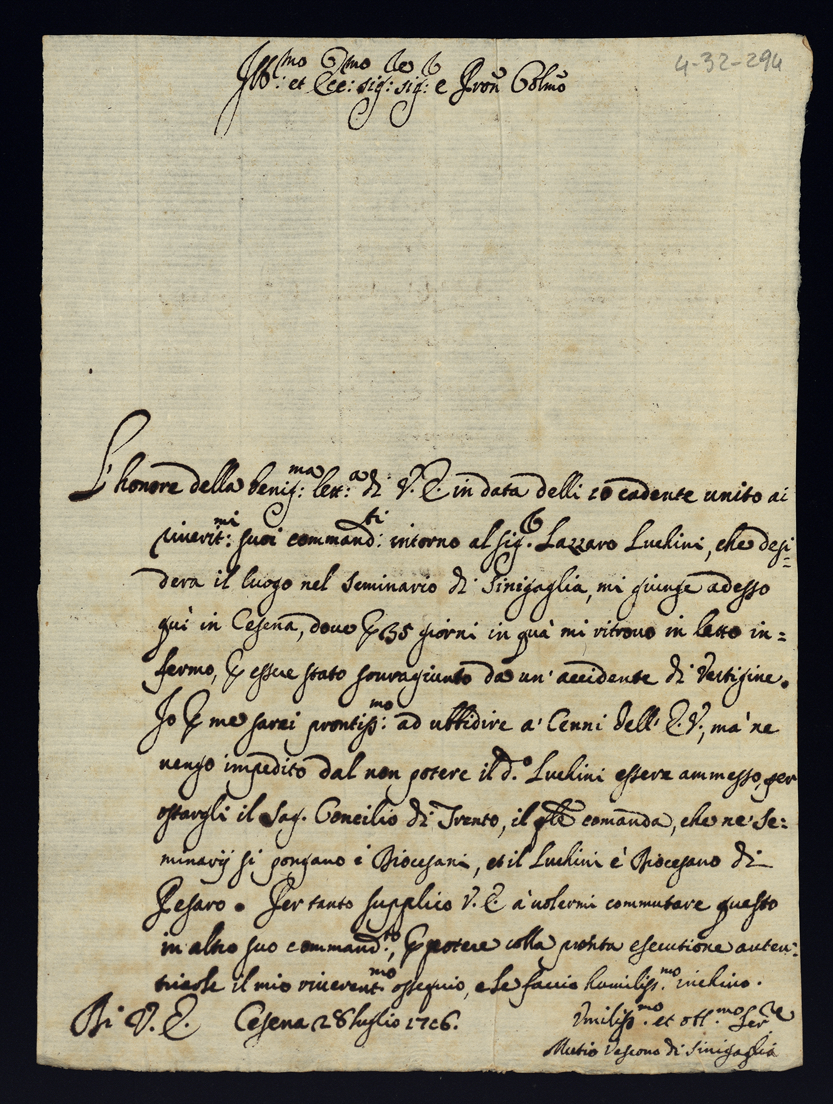 4-32-294
Ill:mo et Ecc:mo Sig:re Sig:r e Pron Colmo
L'honore della benig:ma lett:a di V. E. in data delli 10 cadente unito ai
riverit:mi suoi command:ti intorno al sig.r Lazzaro Luchini, che desi=
dera il luogo nel Seminario di Sinigaglia, mi giunge adesso
quì in Cesena, dove p 35 giorni in quà mi ritrovo in letto in=
fermo, p essere stato sovragiunto da un' accidente di Vertigine.
Io p me sarei prontiss:mo ad ubbidire a' Cenni dell' E. V., mà ne
vengo impedito dal non potere il d.o Luchini essere ammesso, per
ostargli il Sag. Concilio di Trento, il qle comanda, che ne' Se=
minarij si pongano i Diocesani, et il Luchini è Diocesano di
Pesaro. Per tanto supplico V. E. à volermi commutare questo
in altro suo command.to, p potere colla pronta esecutione auten=
ticarle il mio riverent.mo ossequio, e le faccio humiliss.mo inchino.
Di V. E. Cesena 28 luglio 1706.
Umiliss.mo et obl.mo Ser.re
Mutio Vescovo di Sinigaglia